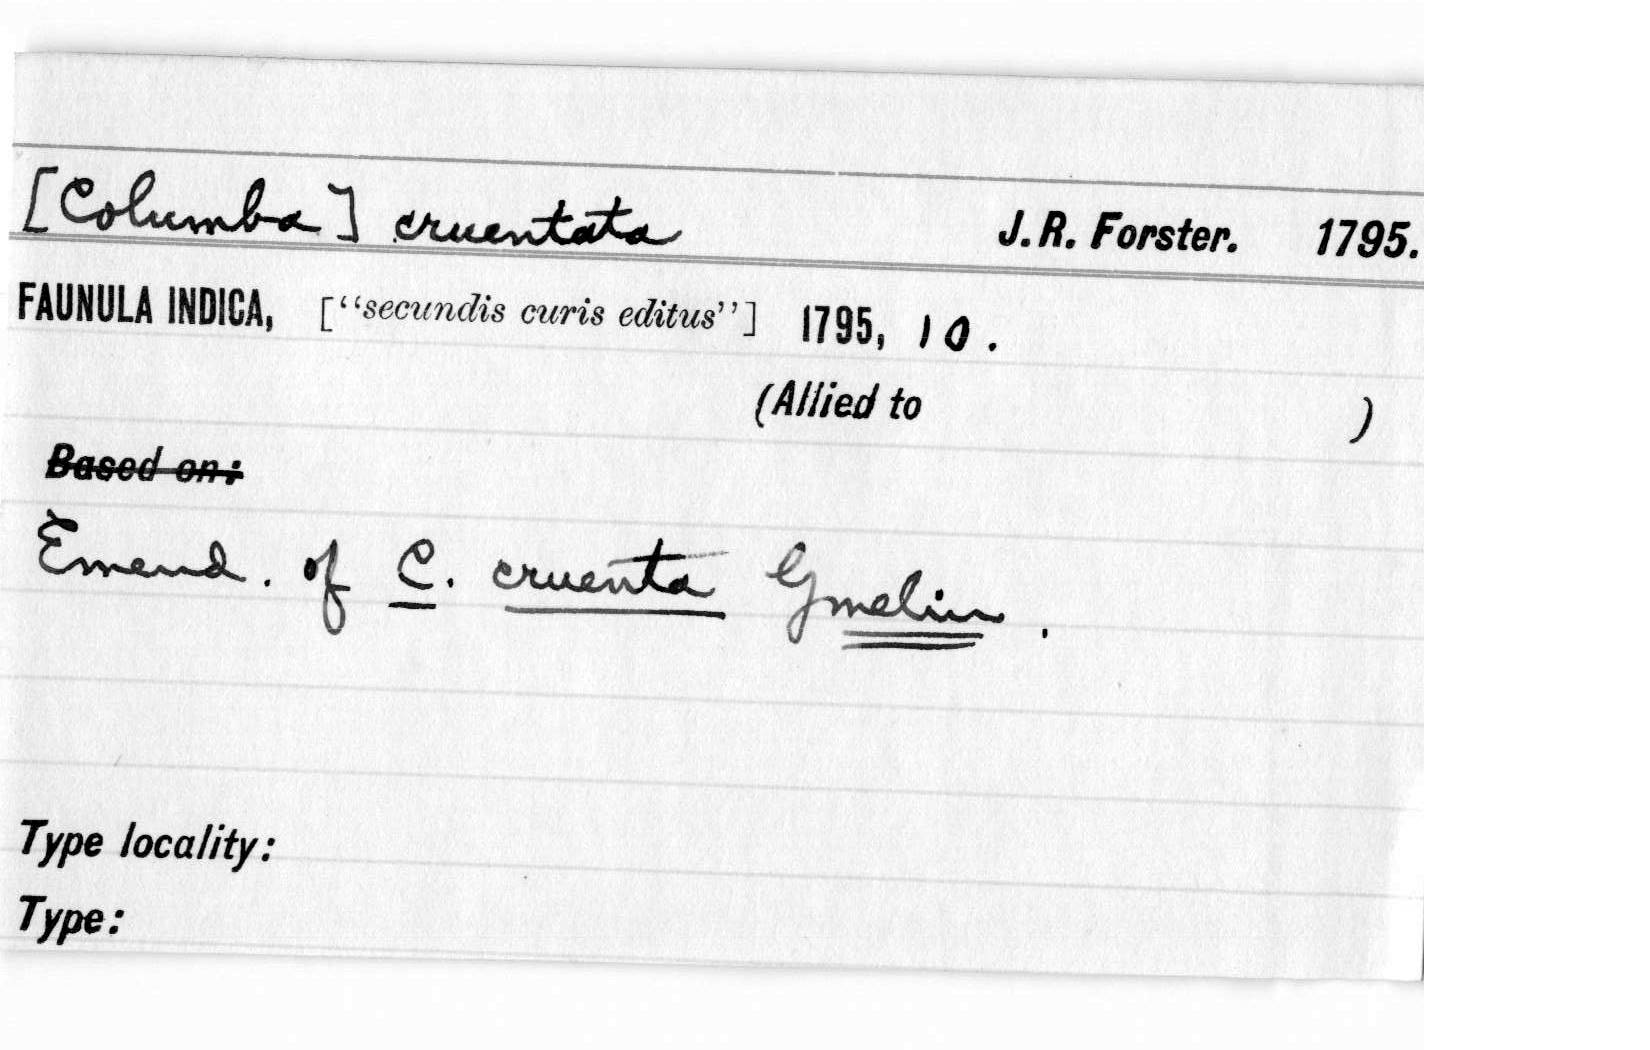 [Columba] cruentata J. R. Forster. 1795.
FAUNULA INDICA, [“secundis curis editus”] 1795, 10.
(Allied to )
Based on:
Emend. of C. cruenta Gmelin.
Type locality:
Type: